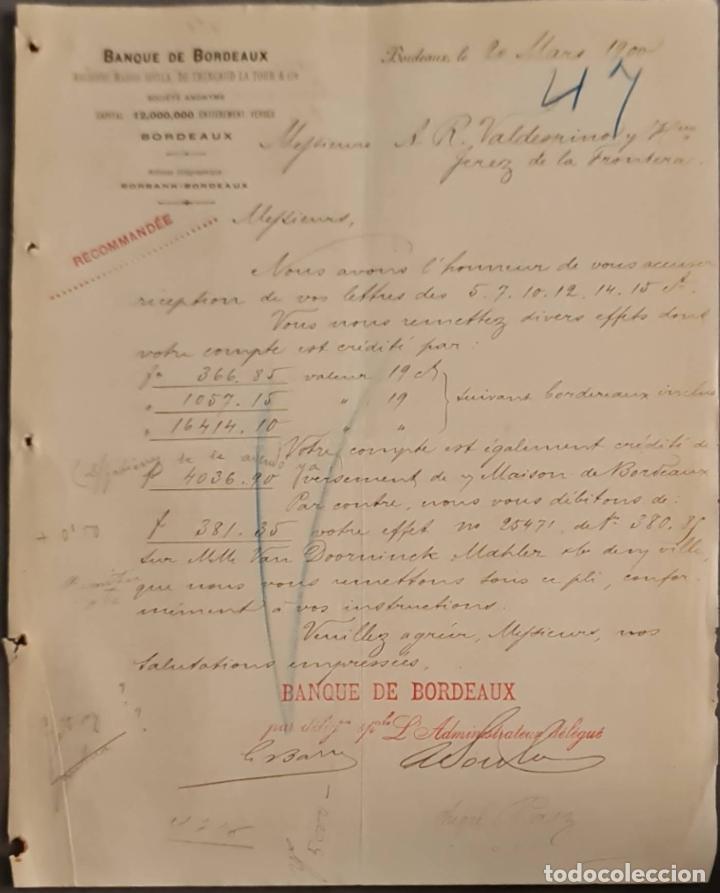 BANQUE DE BORDEAUX
SOCIÉTÉ ANONYME
CAPITAL 12,000,000 ENTIÈREMENT VERSÉS
BORDEAUX
Adresse télégraphique
BORBANK-BORDEAUX
Bordeaux, le 20 Mars 1900
47
Messieurs A. R. Valdespino y
Jerez de la Frontera
RECOMMANDÉE
Messieurs,
Nous avons l'honneur de vous accuser
réception de vos lettres des 5. 7. 10. 12. 14. 15 ct.
Vous nous remettez divers effets dont
votre compte est crédité par:
fr 366.85 valeur 19 ct
" 1057.15 " 19
" 16414.10 " "
suivant bordereaux inclus
Votre compte est également crédité de
fr 4036.90 versement de Maison de Bordeaux
Par contre, nous vous débitons de:
f 381.35 votre effet no 25471, de fr. 380.85
sur Mlle Van Doorninck Mahler ville,
que nous vous remettons sous ce pli, confor-
mément à vos instructions.
Veuillez agréer, Messieurs, nos
salutations empressées,
BANQUE DE BORDEAUX
L'Administrateur Délégué
todocoleccion